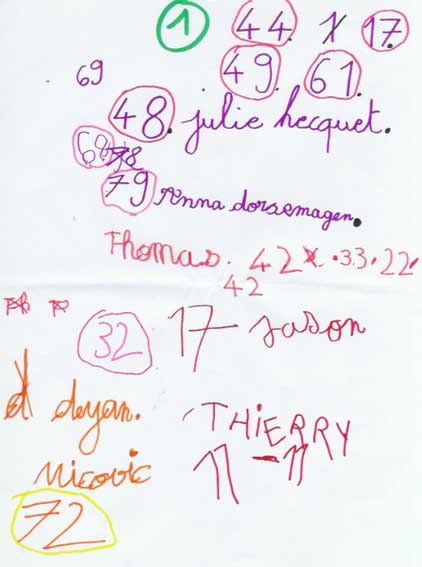 1 44. 1 17.
69 49. 61.
48. julie hecquet.
68 78
79 Anna dorsemagen.
Thomas. 42 x .33.22.
42
32 17 jason
d deyan.
Nicovic
THiERRY
11-11
72